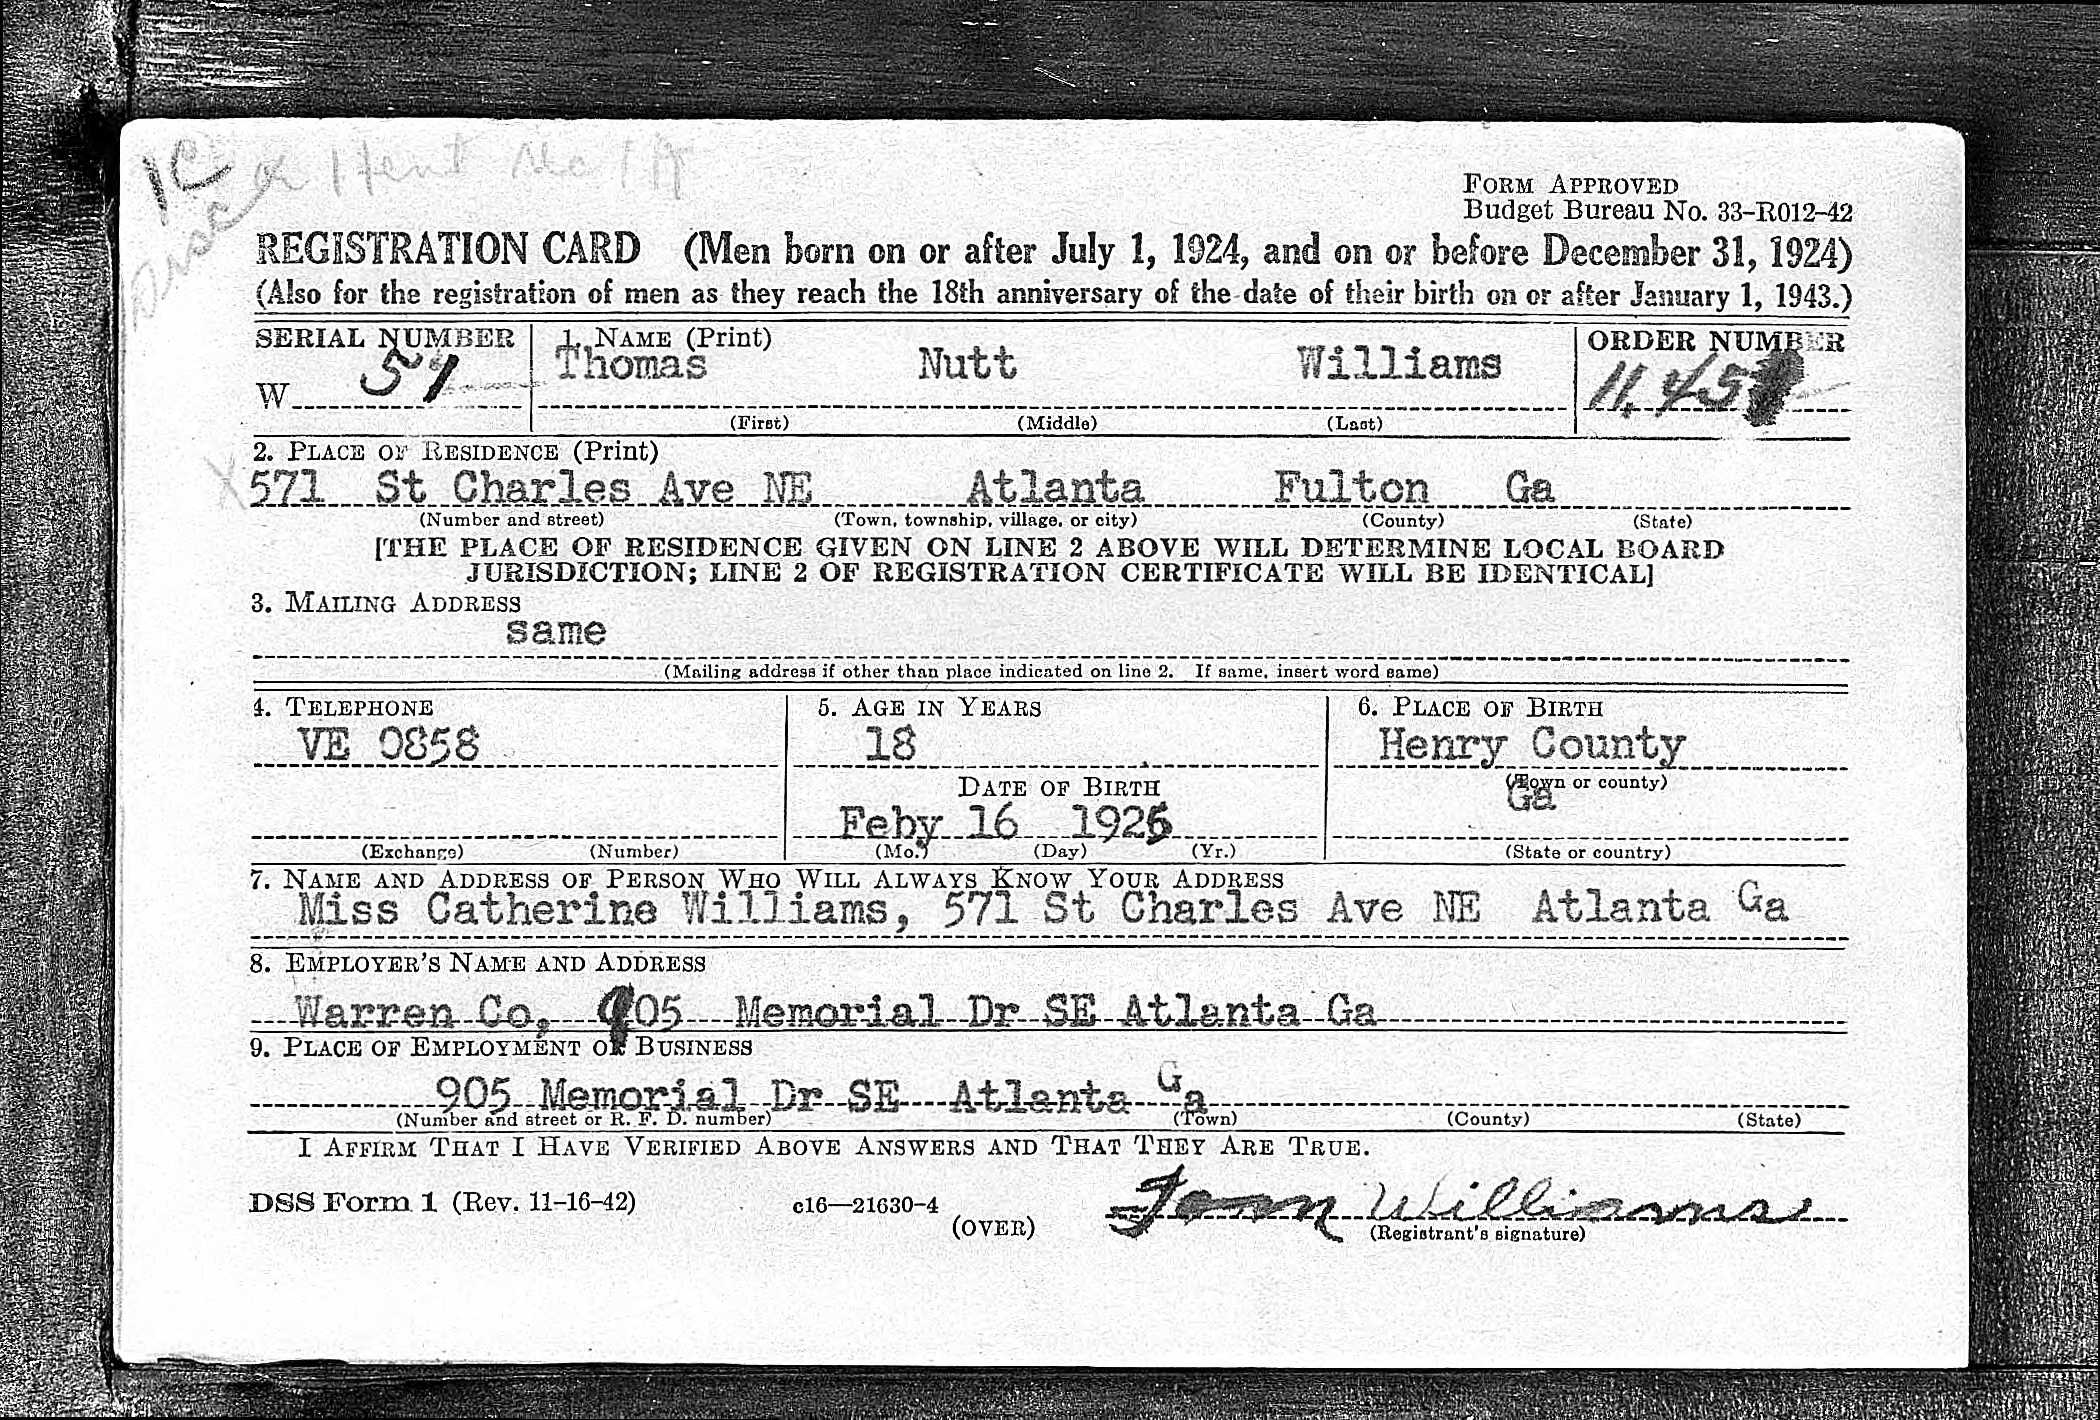 1C
Disc
FORM APPROVED
Budget Bureau No. 33-R012-42
REGISTRATION CARD (Men born on or after July 1, 1924, and on or before December 31, 1924)
(Also for the registration of men as they reach the 18th anniversary of the date of their birth on or after January 1, 1943.)
SERIAL NUMBER 1. NAME (Print) ORDER NUMBER
W 57 Thomas Nutt Williams
(First) (Middle) (Last)
2. PLACE OF RESIDENCE (Print)
X 571 St Charles Ave NE Atlanta Fulton Ga
(Number and street) (Town, township, village, or city) (County) (State)
[THE PLACE OF RESIDENCE GIVEN ON LINE 2 ABOVE WILL DETERMINE LOCAL BOARD
JURISDICTION; LINE 2 OF REGISTRATION CERTIFICATE WILL BE IDENTICAL]
3. MAILING ADDRESS
same
(Mailing address if other than place indicated on line 2. If same, insert word same)
4. TELEPHONE 5. AGE IN YEARS 6. PLACE OF BIRTH
VE 0858 18 Henry County
DATE OF BIRTH (Town or county)
Feby 16 1925 Ga
(Exchange) (Number) (Mo.) (Day) (Yr.) (State or country)
7. NAME AND ADDRESS OF PERSON WHO WILL ALWAYS KNOW YOUR ADDRESS
Miss Catherine Williams, 571 St Charles Ave NE Atlanta Ga
8. EMPLOYER'S NAME AND ADDRESS
Warren Co, 905 Memorial Dr SE Atlanta Ga
9. PLACE OF EMPLOYMENT OR BUSINESS
905 Memorial Dr SE Atlanta Ga
(Number and street or R. F. D. number) (Town) (County) (State)
I AFFIRM THAT I HAVE VERIFIED ABOVE ANSWERS AND THAT THEY ARE TRUE.
DSS Form 1 (Rev. 11-16-42) c16—21630-4 Williams
(OVER) (Registrant's signature)